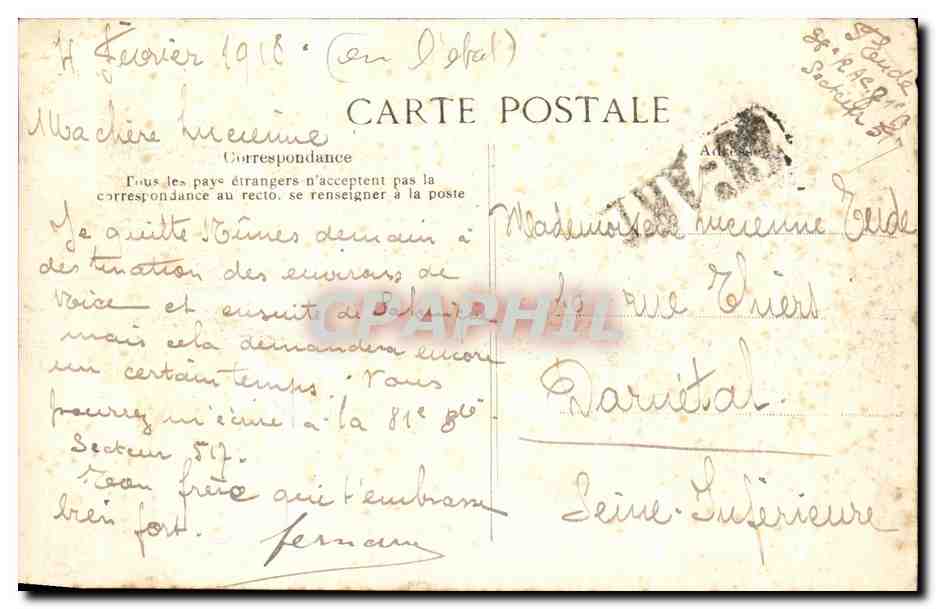 4 Février 1918. (en l'etat)
CARTE POSTALE
Ma chère Lucienne
Correspondance
Tous les pays étrangers n'acceptent pas la
correspondance au recto. se renseigner à la poste
Je quitte Nîmes demain à
destination des environs de
et ensuite de
mais cela demandera encore
un certain temps. Vous
pourrez m'écrire à la 81e
Secteur 517.
Ton frère qui t'embrasse
bien fort.
Fernand
Teude
Secteur
Adresse
Mademoiselle Lucienne Teude
rue Thiers
Darnétal.
Seine-Inférieure
CPAPHIL